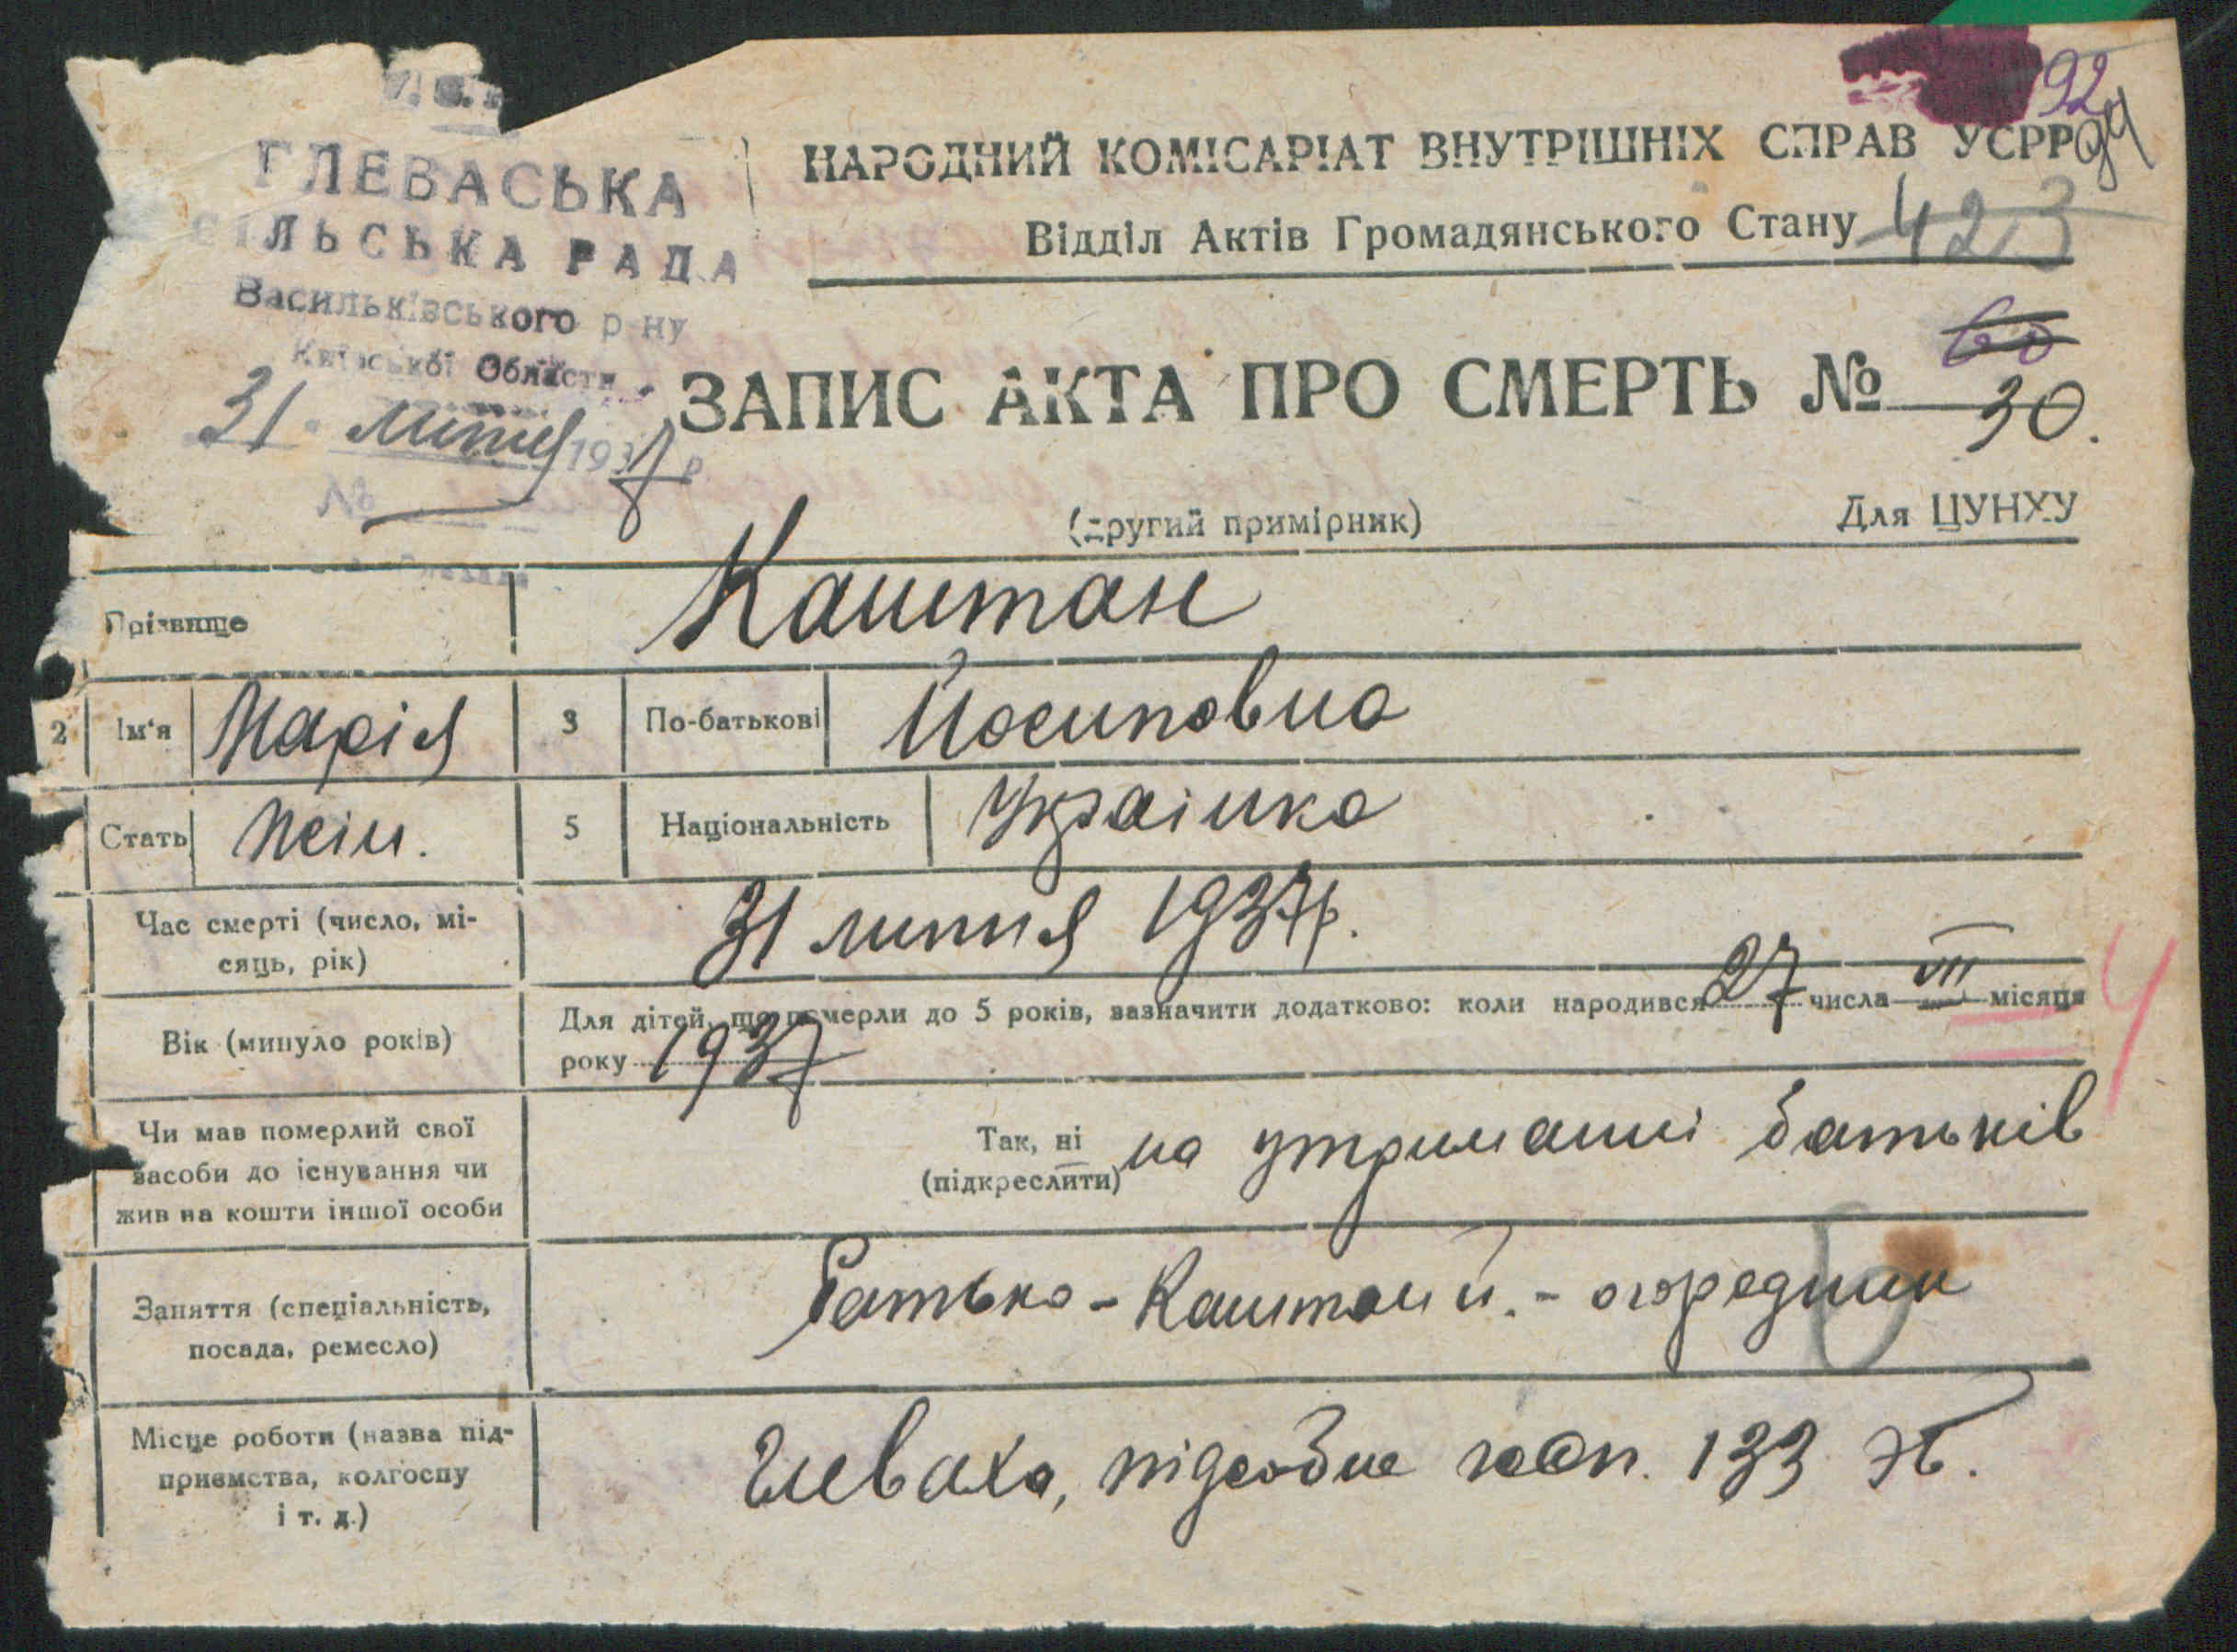 92
94
ГЛЕВАСЬКА
СІЛЬСЬКА РАДА
Васильківського р-ну
Київської Области
31 липня 1937 р
№
НАРОДНИЙ КОМІСАРІАТ ВНУТРІШНІХ СПРАВ УСРР
Відділ Актів Громадянського Стану 423
60
ЗАПИС АКТА ПРО СМЕРТЬ № 30.
(другий примірник)
Для ЦУНХУ
Прізвище Каштан
2 Ім‘я Марія 3 По-батькові Йосиповна
Стать Жін. 5 Національність Українка
Час смерті (число, мі-
сяць, рік) 31 липня 1937р.
Вік (минуло років)
Для дітей, що померли до 5 років, зазначити додатково: коли народився 27 числа VII місяця
року 1937
4
Чи мав померлий свої
засоби до існування чи
жив на кошти іншої особи
Так, ні
(підкреслити) на утриманні батьків
Заняття (спеціальність,
посада, ремесло)
Батько - Каштан Й. - огородник
Місце роботи (назва під-
приємства, колгоспу
і т. д.)
Глеваха, підсобне госп. 133